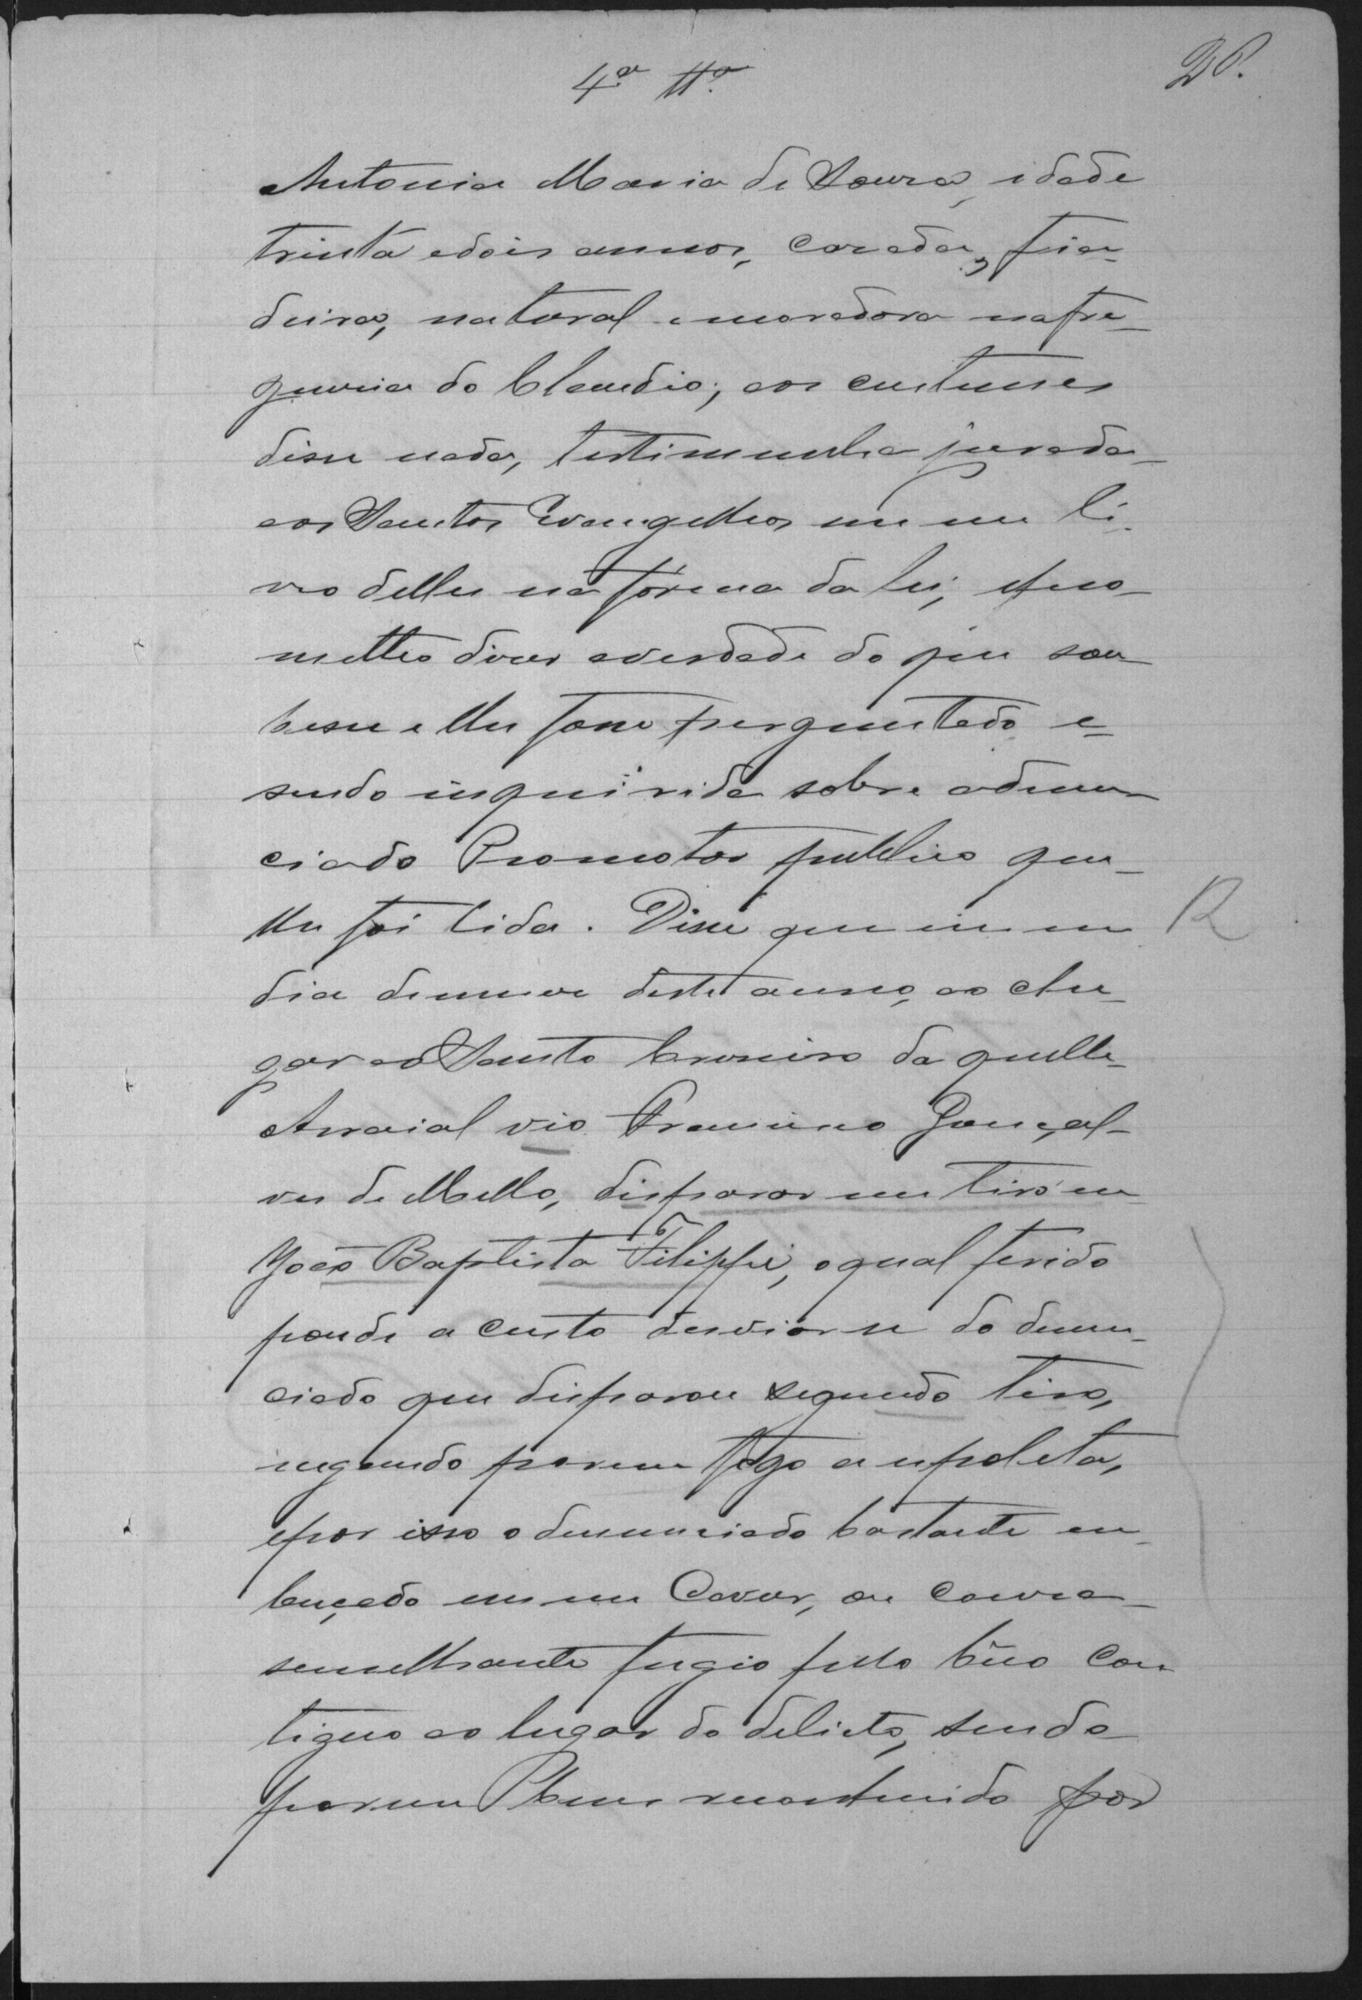 26.
4ª Ttª
Antonia Maria de Souza, idade
trinta e dois annos, casada, fian-
deira, natural e moradora na fre-
guezia do Claudio; aos custumes
disse nada, testimunha jurada
aos Santos Evangelhos em um li-
vro delles na fórma da lei, e pro-
metteo dizer a verdade do que sou-
besse e lhe fosse perguntado e
sendo inquirida sobre a denun-
cia do Promotor publico que
lhe foi lida. Disse que em um
dia de nove deste anno, ao che-
gar ao Santo Cruzeiro da quelle
Arraial vio Francisco Gonçal-
ves de Mello, disparar um tiro em
João Baptista Filippe, o qual ferido
poude a custo desviar se do denun-
ciado que disparou segundo tiro,
negando porem fogo a espoleta,
e por isso o denunciado bastante em-
buçado em um Cavor, ou couza
semelhante fugio pello bêco con
tiguo ao lugar do delicto, sendo
porem bem reconhecido por
R